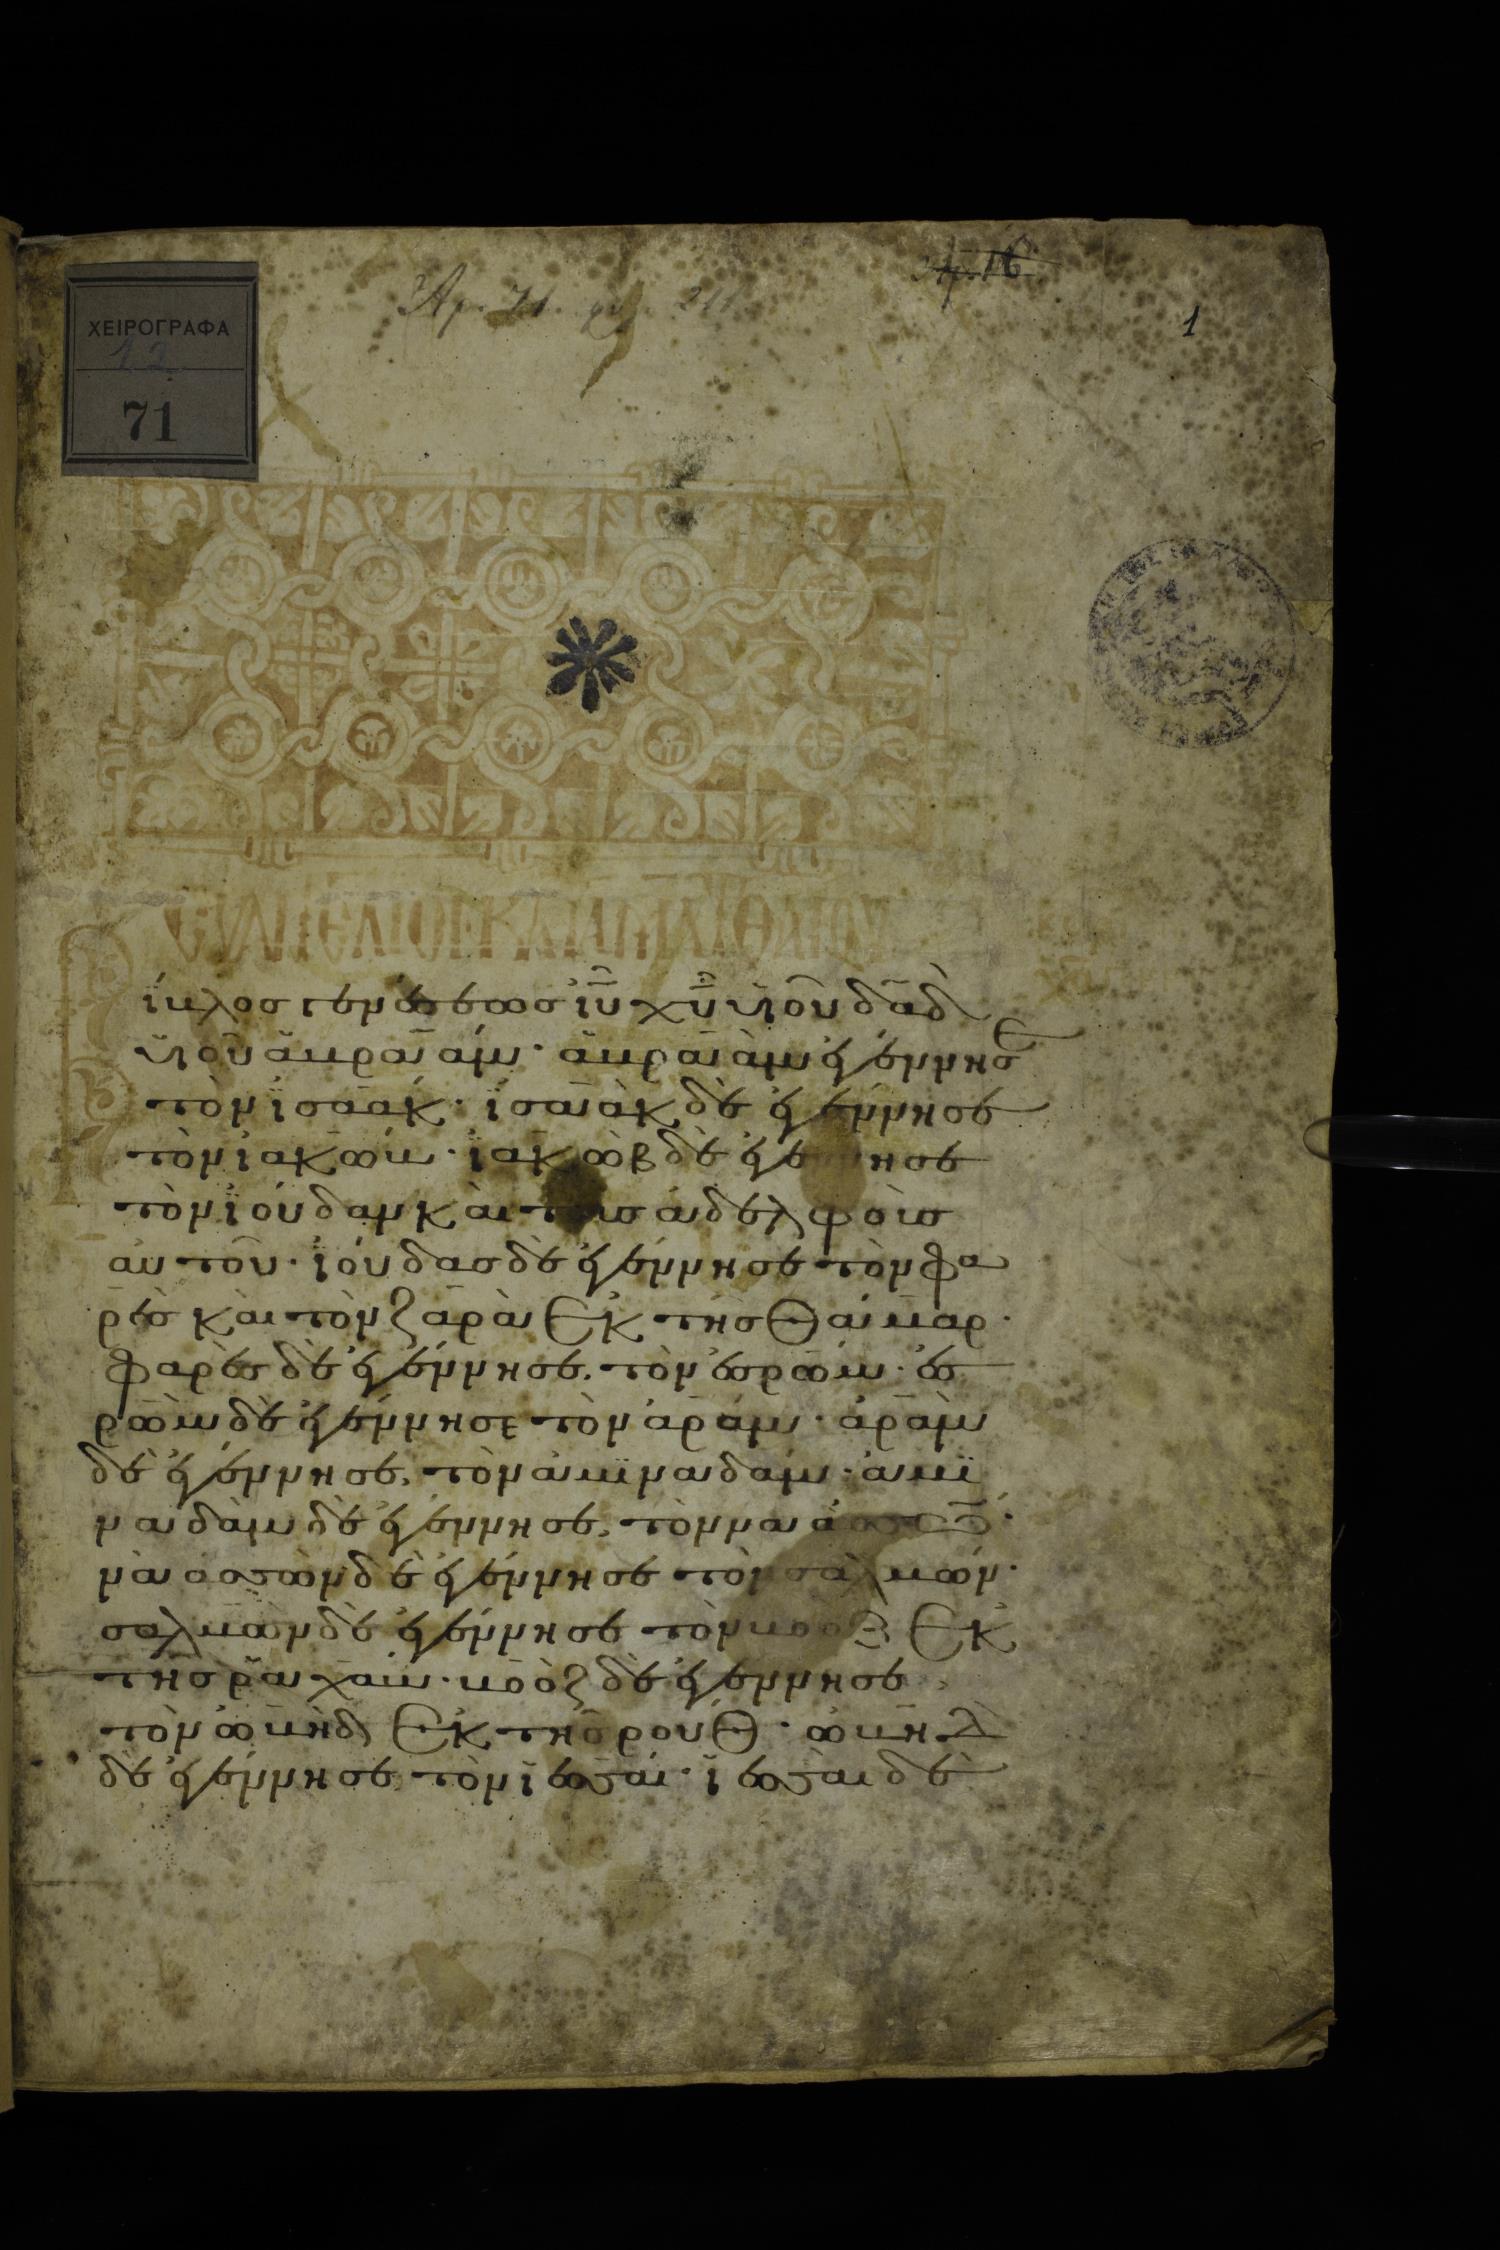 ΧΕΙΡΟΓΡΑΦΑ
12
71
Ἀρ. 71. φυλ. 211
Ἀρ. 16
1
ΕΥΑΓΓΕΛΙΟΝ ΚΑΤΑ ΜΑΤΘΑΙΟΝ
Βίβλος γενέσεως ἰῦ χῦ υἱοῦ δαδ
υἱοῦ ἀβραάμ· ἀβραὰμ ἐγέννησε
τὸν ἰσαάκ· ἰσαὰκ δὲ ἐγέννησε
τὸν ἰακώβ· ἰακὼβ δὲ ἐγέννησε
τὸν ἰούδαν καὶ τοὺς ἀδελφοὺς
αὐτοῦ· ἰούδας δὲ ἐγέννησε τὸν φα
ρὲς καὶ τὸν ζαρὰ ἐκ τῆς θάμαρ·
φαρὲς δὲ ἐγέννησε, τὸν ἐσρώμ· ἐσ
ρὼμ δὲ ἐγέννησε τὸν ἀράμ· ἀρὰμ
δὲ ἐγέννησε, τὸν ἀμϊναδάμ· ἀμϊ
ναδὰμ δὲ ἐγέννησε, τὸν ναασσῶ·
ναασσὼν δὲ ἐγέννησε τὸν σαλμών·
σαλμὼν δὲ ἐγέννησε τὸν βοὸζ ἐκ
τῆς ῥαχάμ· βοὸζ δὲ ἐγέννησε
τὸν ὠβὴδ ἐκ τῆς ῥούθ· ὠβὴδ
δὲ ἐγέννησε, τὸν ἰεσσαί· ἰεσσαὶ δὲ